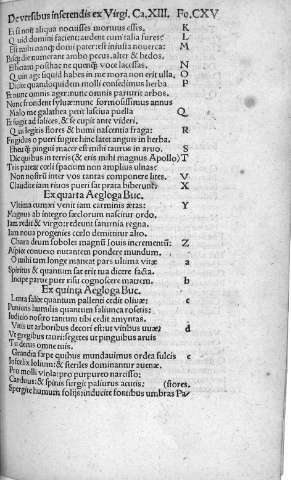 De versibus inserendis ex Virgi. Ca.XIII. Fo.CXV
Et si non aliqua nocuisses mortuus esses, K
Quid domini facient: audent cum talia fures? L
Est mihi nanque domi pater: est iniusta nouerca: M
Bisque die numerant ambo pecus, alter & hedos.
Efficiam posthac ne quenque voce lacessas, N
Quin age siquid habes in me mora non erit ulla, O
Dicite quandoquidem molli consedimus herba P
Et nunc omnis ager: nunc omnis parturit arbos.
Nunc frondent syluae: nunc formosissimus annus
Malo me galathea petit lasciua puella Q
Et fugit ad salices, & se cupit ante videri,
Qui legitis flores & humi nascentia fraga: R
Frigidus o pueri fugite hinc latet anguis in herba.
Eheu quam pingui macer est mihi taurus in aruo, S
Dic quibus in terris (& eris mihi magnus Apollo) T
Tris pateat coeli spacium non amplius ulnas:
Non nostrum inter vos tantas componere lites. V
Claudite iam riuos pueri sat prata biberunt: X
Ex quarta Aegloga Buc.
Vltima cumaei venit iam carminis aetas: Y
Magnus ab integro saeclorum nascitur ordo,
Iam redit & virgo: redeunt saturnia regna.
Iam noua progenies coelo demittitur alto.
Chara deum soboles magnum Iouis incrementum: Z
Aspice conuexo nutantem pondere mundum.
O mihi tam longe maneat pars ultima vitae a
Spiritus & quantum sat erit tua dicere facta.
Incipe parue puer risu cognoscere matrem. b
Ex quinta Aegloga Buc.
Lenta salix quantum pallenti cedit oliuae: c
Puniceis humilis quantum saliunca rosetis:
Iudicio nostro tantum tibi cedit amyntas.
Vitis ut arboribus decori est: ut vitibus uuae: d
Vt gregibus tauri: segetes ut pinguibus aruis
Tu decus omne tuis.
Grandia saepe quibus mandauimus ordea sulcis e
Infelix lolium: & steriles dominantur auenae.
Pro molli viola: pro purpureo narcisso:
Carduus: & spinis surgit paliurus acutis: (stores.
Spergite humum foliis: inducite fontibus umbras Pa/